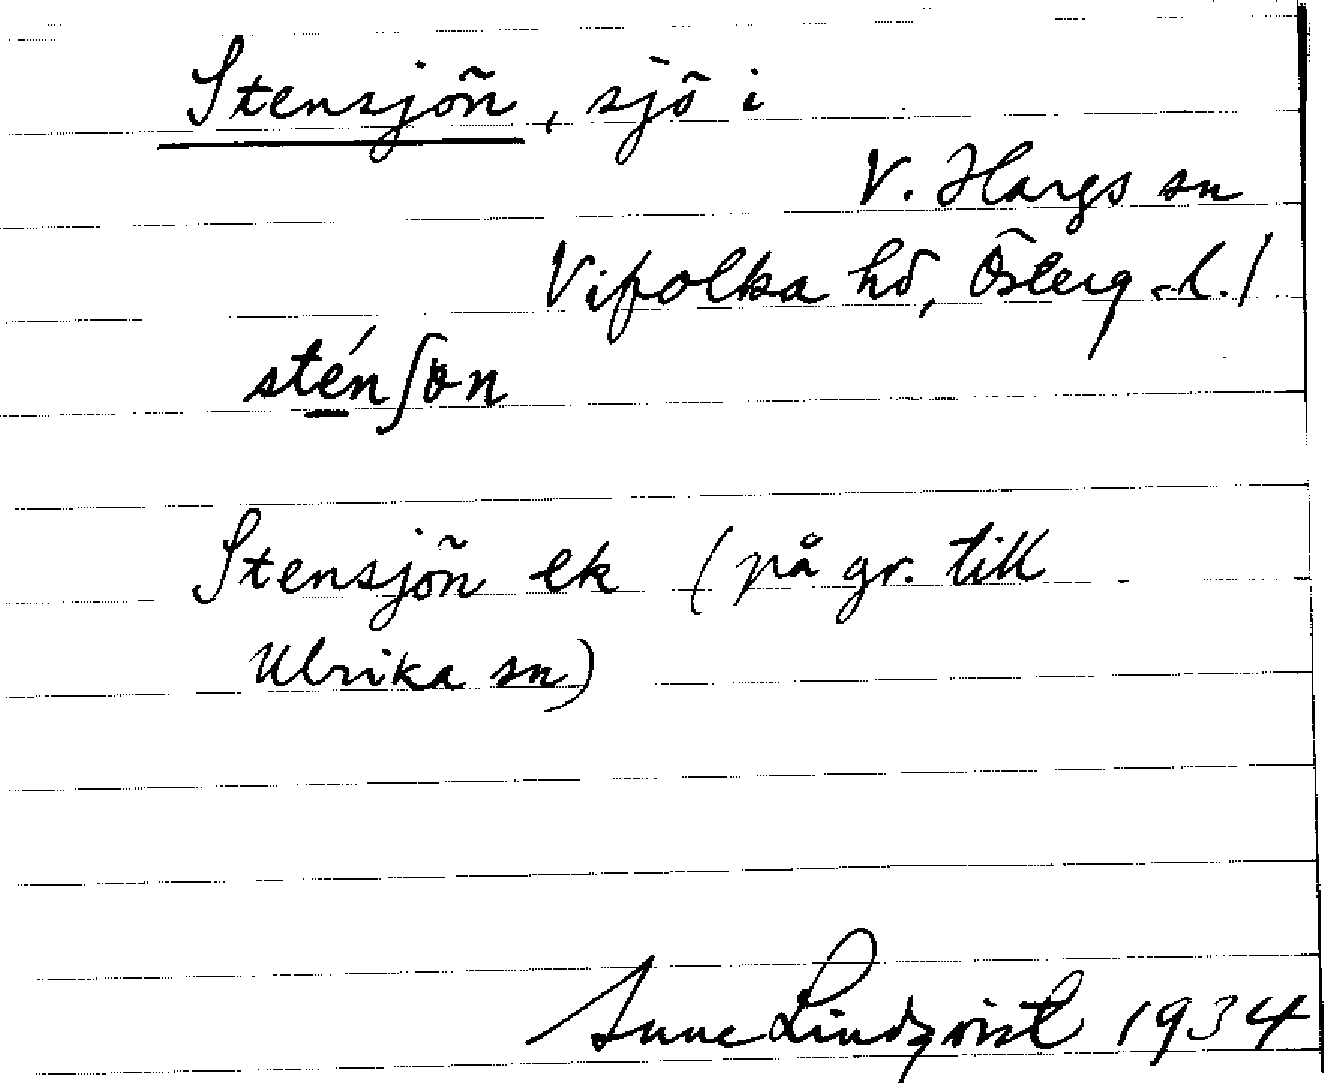 Stensjön, sjö i
V. Hargs sn
Vifolka hd, Österg. l.
sténʃɵn
Stensjön ek (på gr. till
Ulrika sn)
Sune Lindqvist 1934